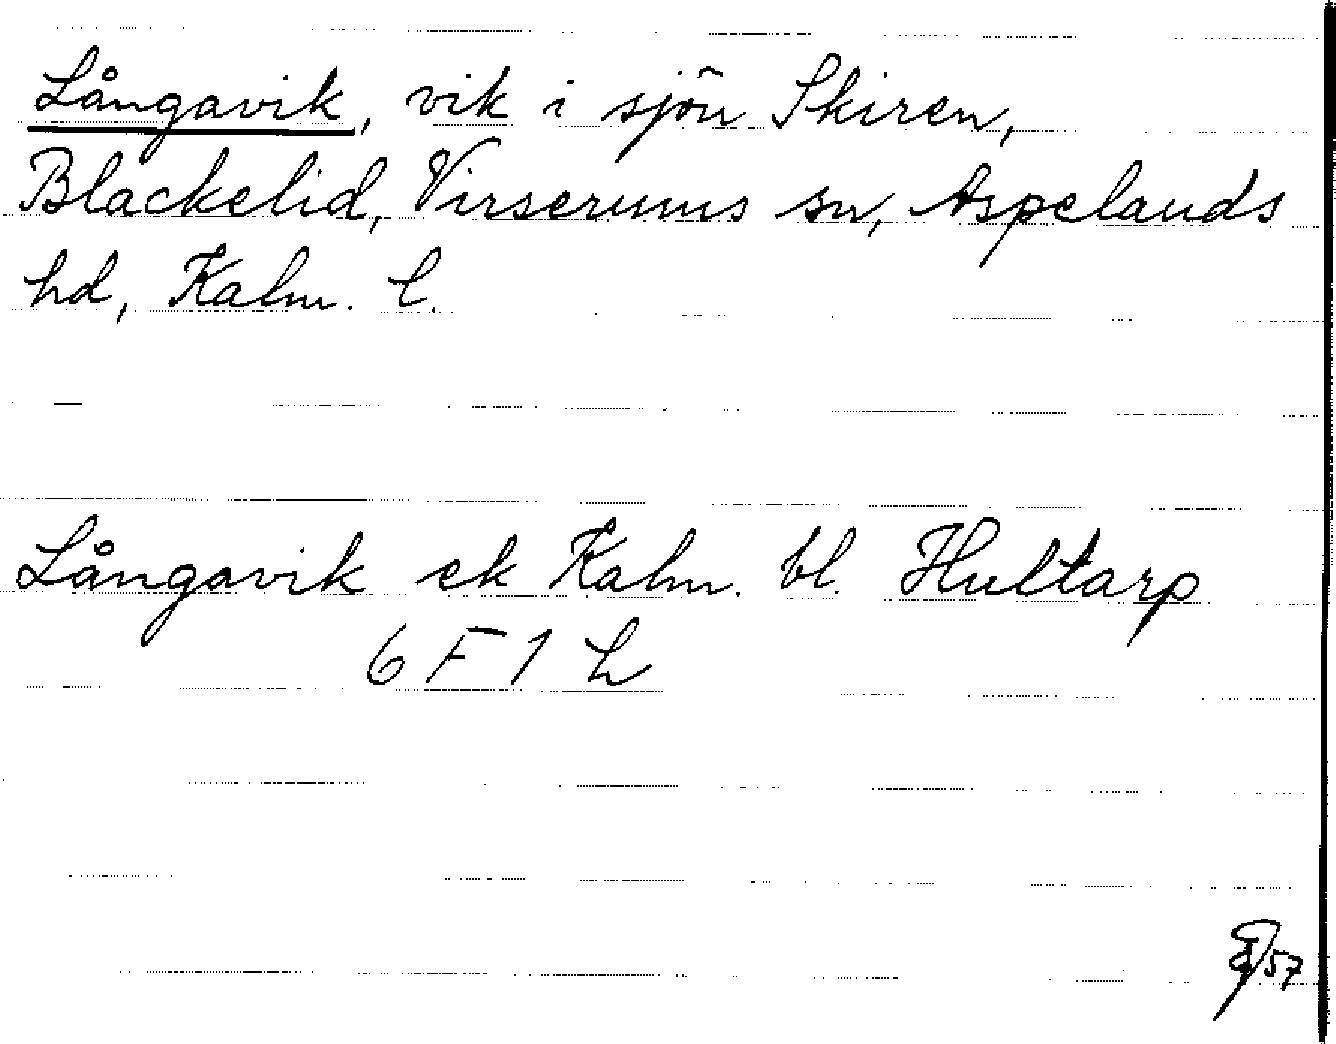 Långavik, vik i sjön Skiren,
Blackelid, Virserums sn, Aspelands
hd, Kalm. l.
Långavik ek Kalm. bl. Hultarp
6 F 1 h
57